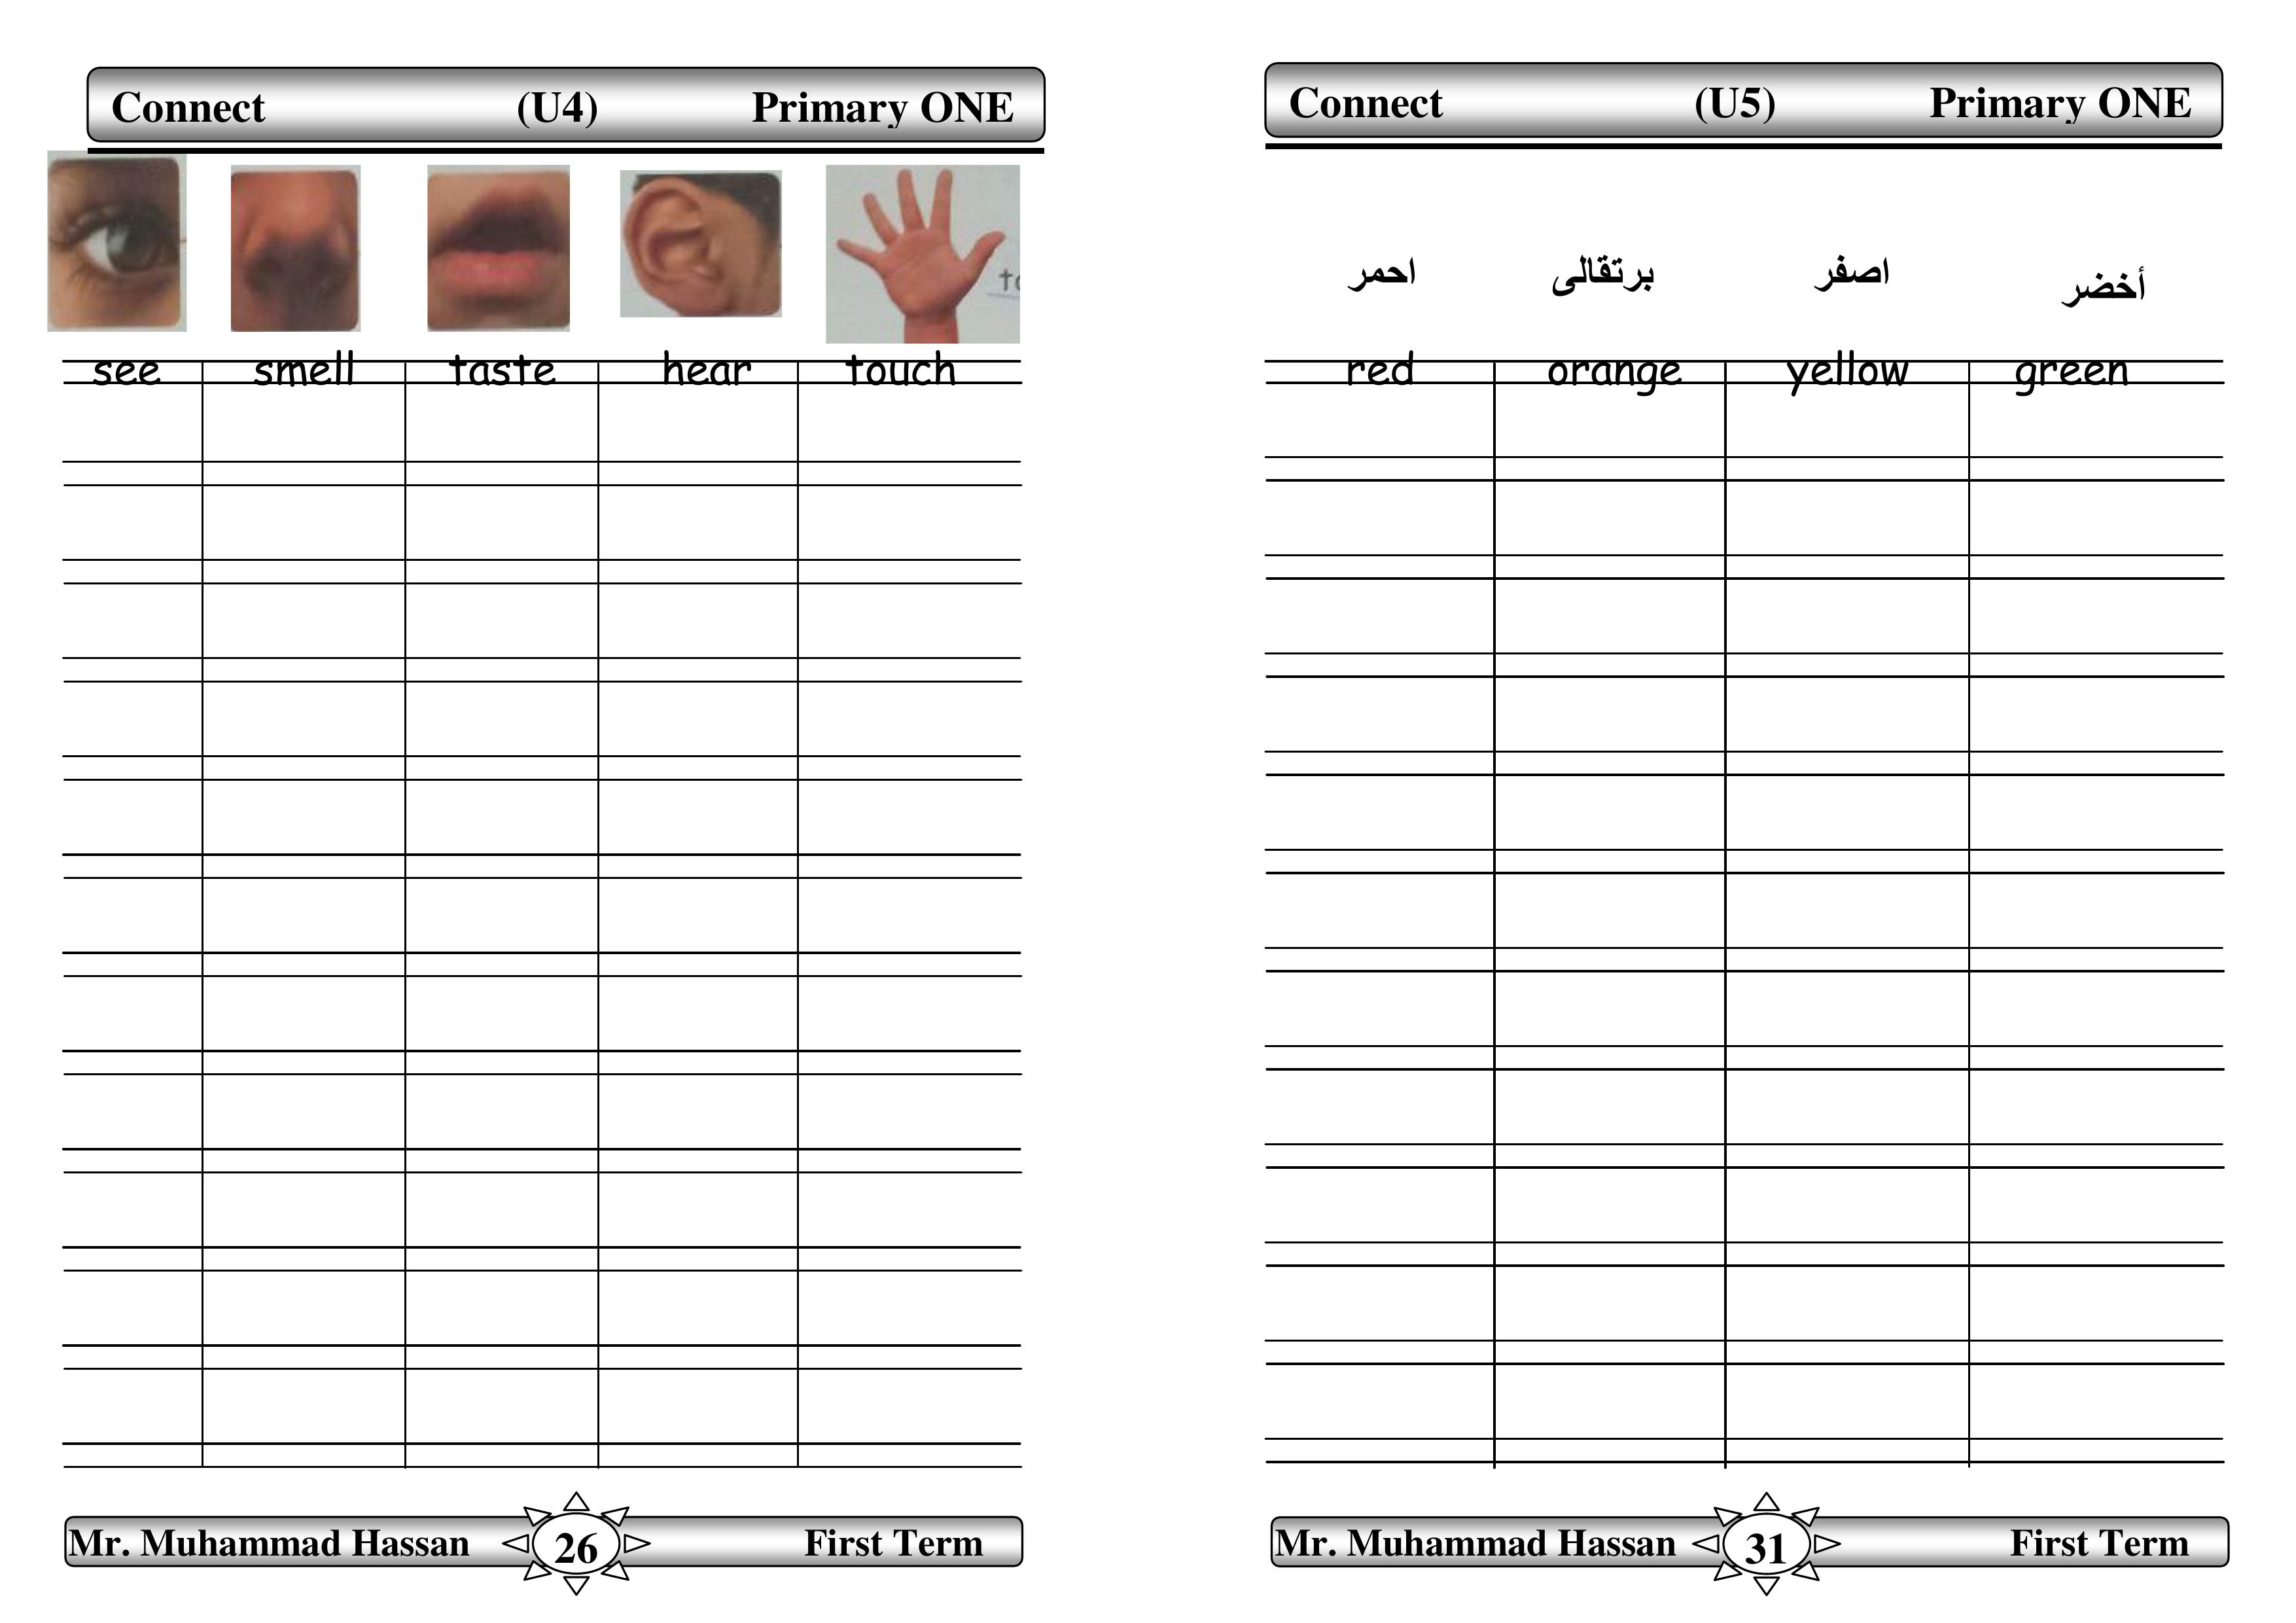 Connect (U4) Primary ONE
to
see smell taste hear touch
Mr. Muhammad Hassan 26 First Term
Connect (U5) Primary ONE
احمر برتقالى اصفر أخضر
red orange yellow green
Mr. Muhammad Hassan 31 First Term